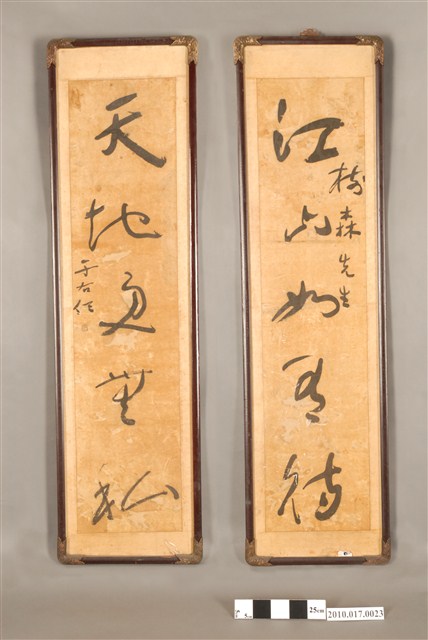 江山如有待
樹森先生
天地更無私
于右任
25cm
2010.017.0023